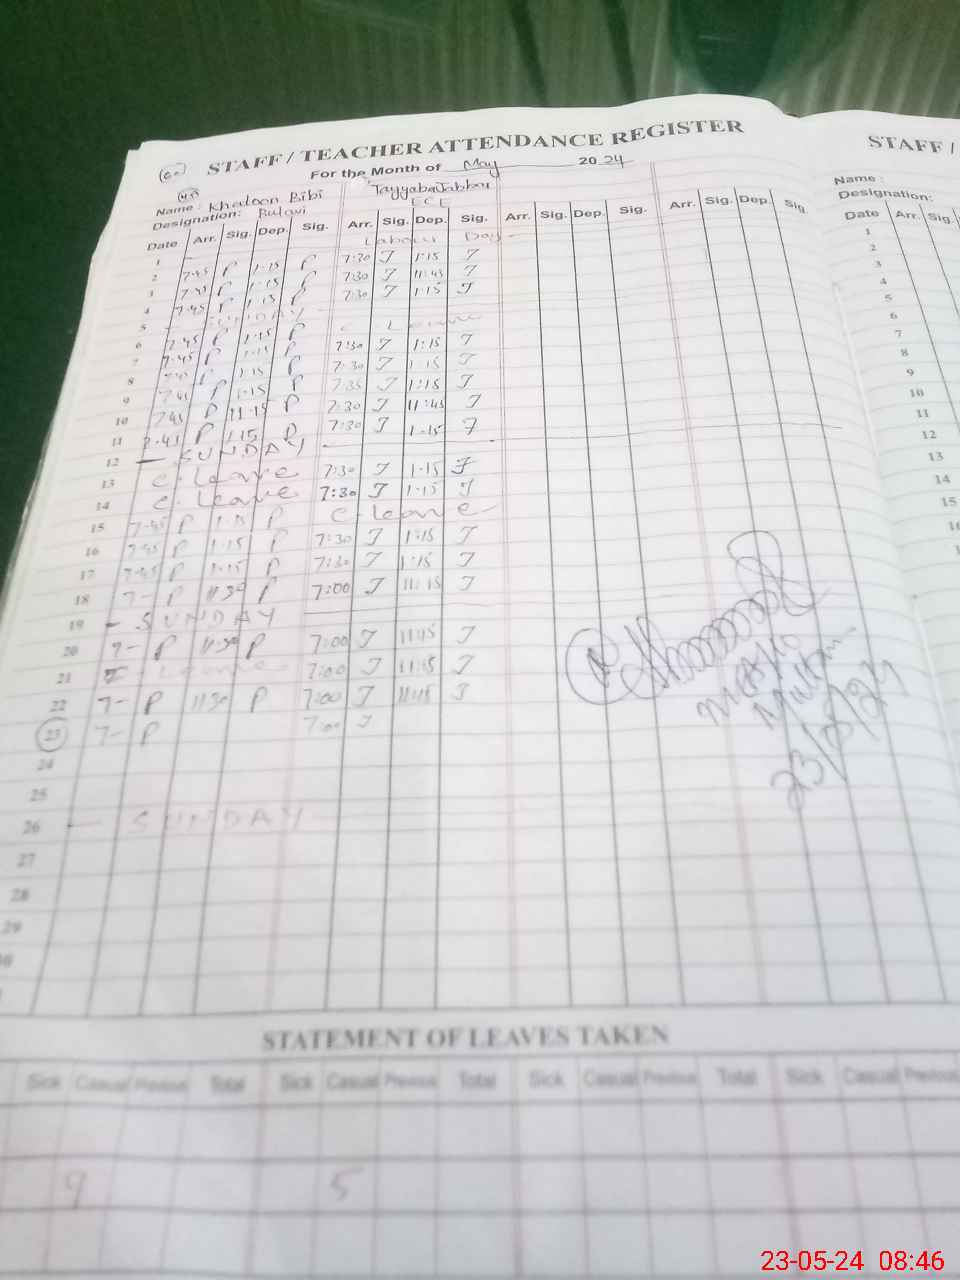 STAFF / TEACHER ATTENDANCE REGISTER STAFF /
For the Month of May 2024
Name : Khatoon Bibi Tayyaba Jabbar Name :
Designation: Bulavi ECE Designation:
Date Arr. Sig. Dep. Sig. Arr. Sig. Dep. Sig. Arr. Sig. Dep. Sig. Arr. Sig. Dep. Sig. Date Arr. Sig.
1 Labour Day 1
2 7:45 P 1:15 P 7:30 J 1:15 J 2
3 7:45 P 1:15 P 7:30 J 11:45 J 3
4 7:45 P 1:15 P 7:30 J 1:15 J 4
5 SUNDAY 5
6 7:45 P 1:15 P C. Leave 6
7 7:45 P 1:15 P 7:30 J 1:15 J 7
8 P 1:15 P 7:30 J 1:15 J 8
9 7:45 P 1:15 P 7:35 J 1:15 J 9
10 7:45 P 11:15 P 7:30 J 11:45 J 10
11 7:45 P 1:15 P 7:30 J 1:15 J 11
12 SUNDAY 12
13 C. Leave 7:30 J 1:15 J 13
14 C. Leave 7:30 J 1:15 J 14
15 7:45 P 1:15 P C. Leave 15
16 7:45 P 1:15 P 7:30 J 1:15 J
17 7:45 P 1:15 P 7:30 J 1:15 J
18 7- P 11:30 P 7:00 J 11:15 J
19 - SUNDAY
20 7- P 11:30 P 7:00 J 11:45 J
21 Leave 7:00 J 11:15 J
22 7- P 11:30 P 7:00 J 11:15 J
23 7- P 7:00 J
24
25
26 - SUNDAY
27
28
29
STATEMENT OF LEAVES TAKEN
Sick Casual Previous Total Sick Casual Previous Total Sick Casual Previous Total Sick Casual Previous
9 5
23/5/24
23-05-24 08:46